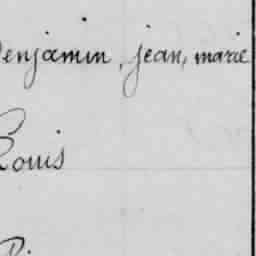 Benjamin, jean, marie
Louis